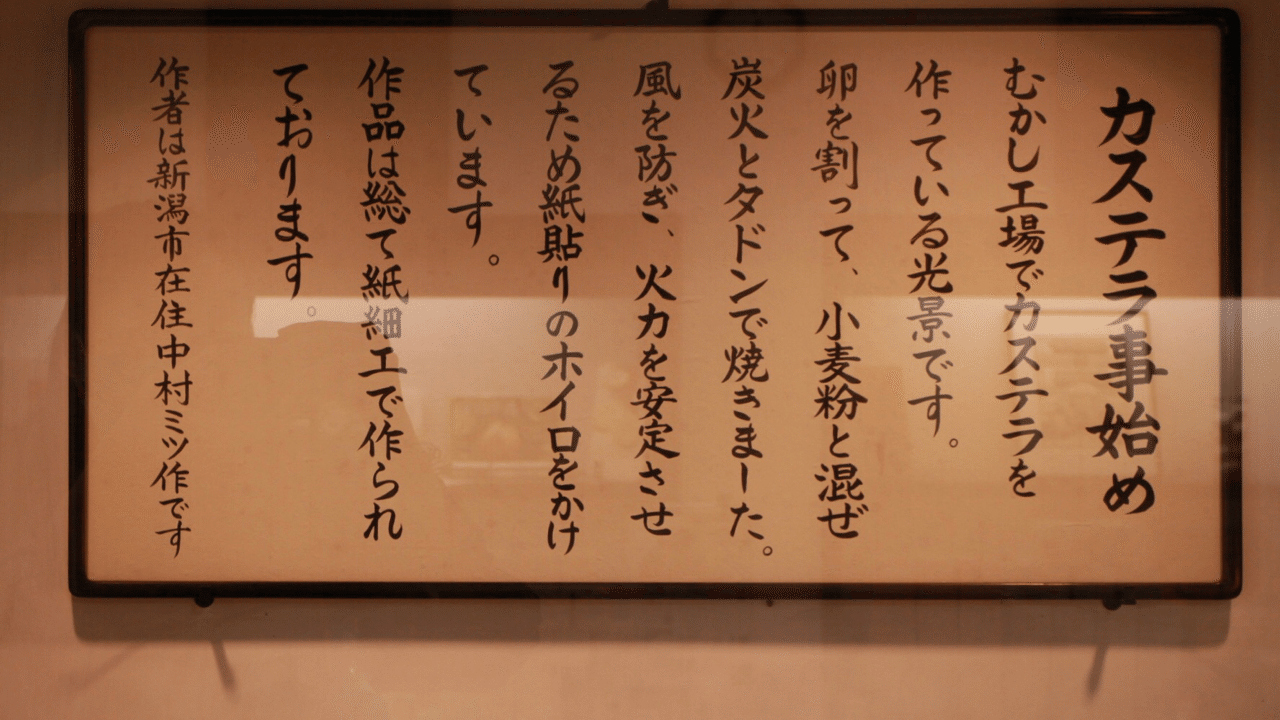 カステラ事始め
むかし工場でカステラを
作っている光景です。
卵を割って、小麦粉と混ぜ
炭火とタドンで焼きました。
風を防ぎ、火力を安定させ
るため紙貼りのホイロをかけ
ています。
作品は総て紙細工で作られ
ております。
作者は新潟市在住中村ミツ作です